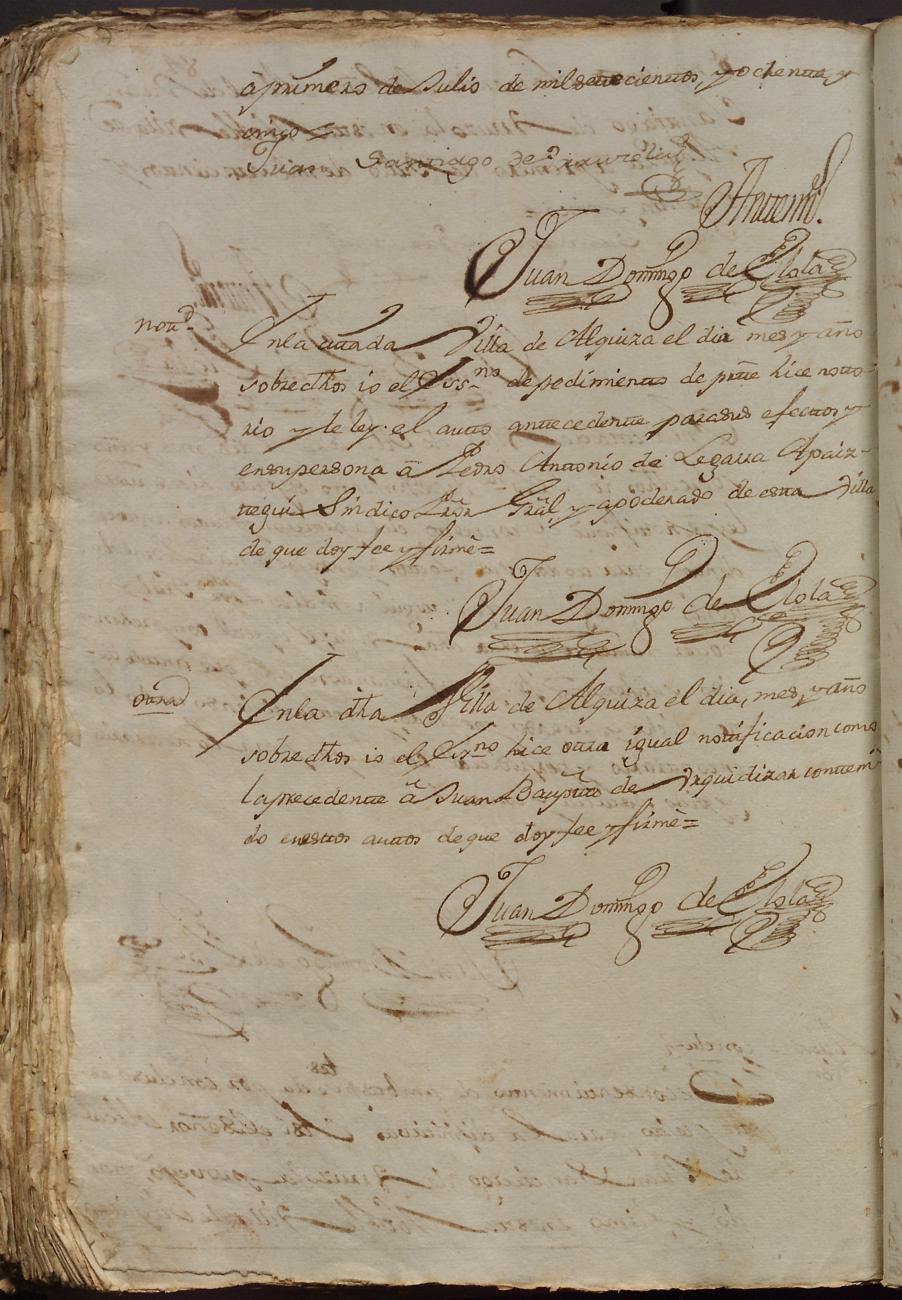 á primero de Julio de mil settecientos, y ochenta, y
cinco =
Juan Santiago de Yrureolia
Antemi.
Juan Domingo de Elola
nott.on
En la cittada Villa de Alquiza el dia mes y año
sobredhos io el Essno de pedimiento de ptte hice notto-
rio y le ley el autto anttecedentte para sus efecttos y
en su persona â Pedro Anttonio de Legarra Apaiz-
ttegui Sindico Pror Gral y apoderado de estta Villa
de que doy fee y firmè =
Juan Domingo de Elola
ottra
En la dha Villa de Alquiza el dia, mes, y año
sobredhos io el Essno hice ottra igual nottificacion como
la precedentte â Juan Bapttta de Urquidizar contteni-
do en esttos auttos de que doy fee y firmè =
Juan Domingo de Elola